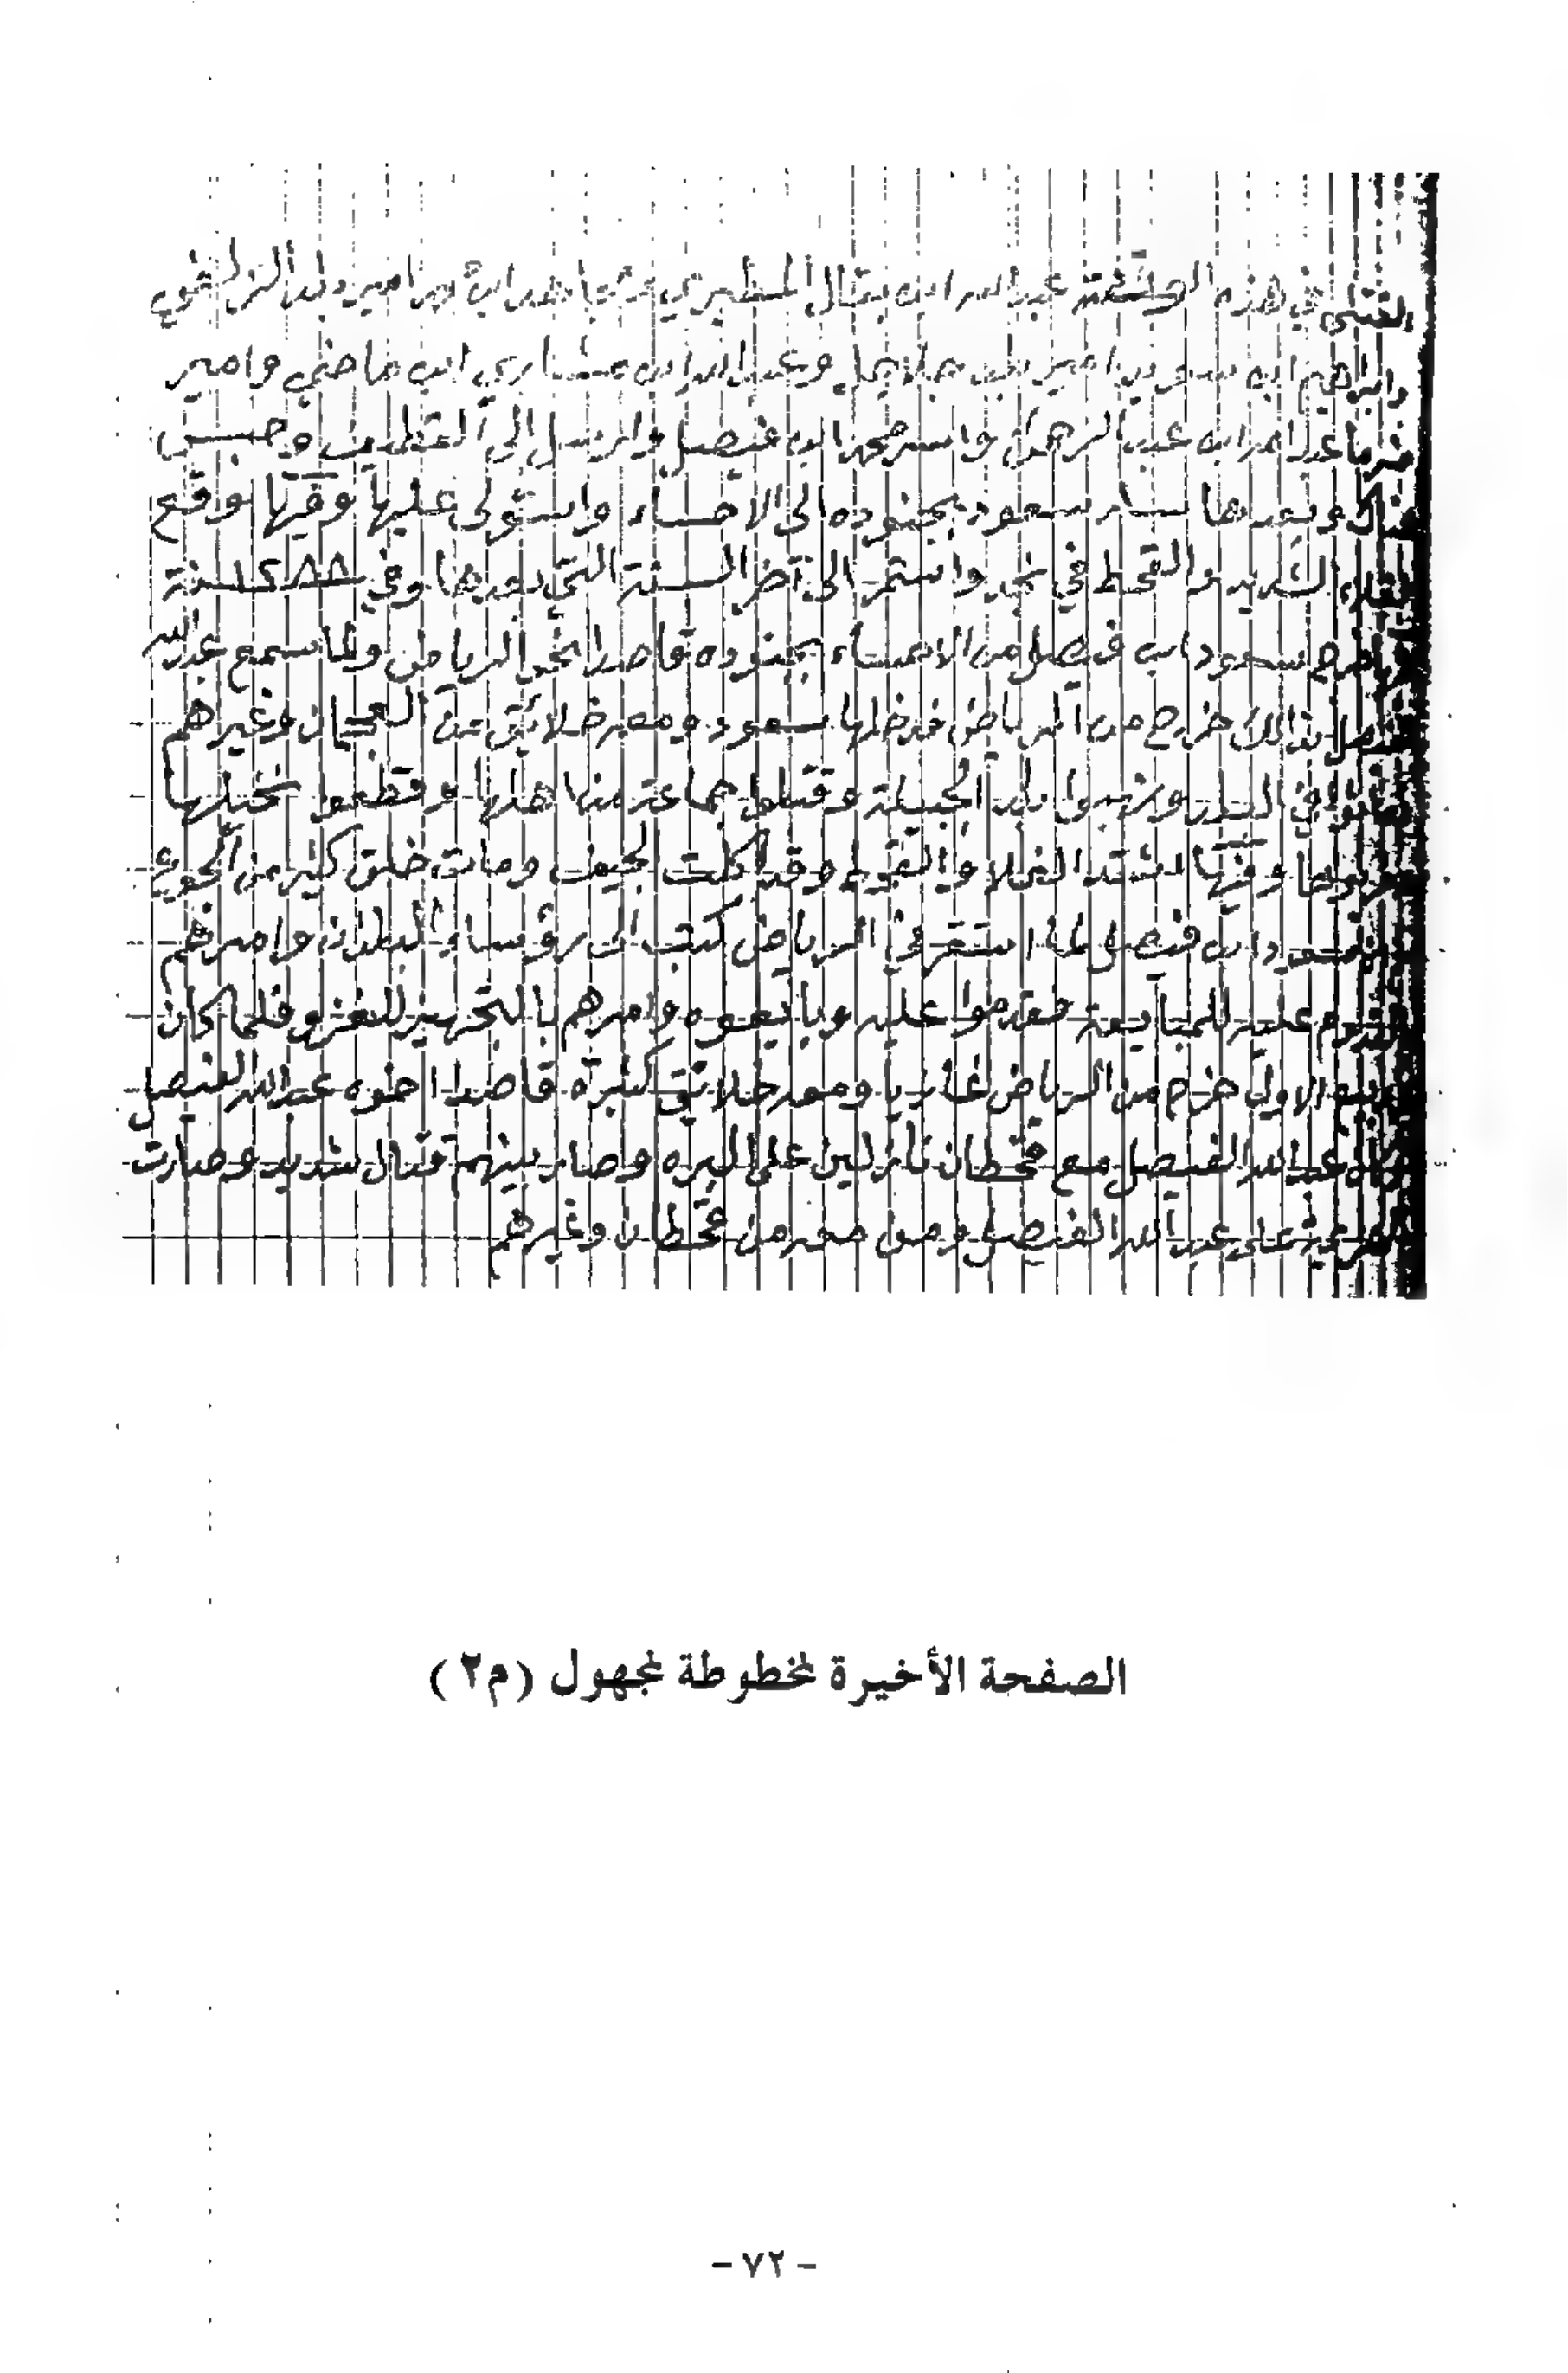 القتلى في هذه الوقعة عبدالله ابن بتال المطيري ومجاهد ابن محمد امير بلد الزلفي
وابراهيم ابن سويد امير بلد جلاجل وعبدالله ابن مشاري ابن ماضي وامير
ضرما عبدالله ابن عبدالرحمن واسر محمد ابن فيصل وارسل الى القطيف وحبس
هناك وبعدها سار سعود بجنوده الى الاحساء واستولى عليها وفيها وقع
الغلاء الشديد والقحط في نجد واستمر الى آخر السنة التي بعدها وفي ١٢٨٨ سنة
خرج سعود ابن فيصل من الاحساء بجنوده قاصدا نحو الرياض ولما سمع عبدالله
الفيصل بذالك خرج من الرياض فدخلها سعود ومعه خلائق من العجمان وغيرهم
في البلد ونهبوا بلد الجبيلة وقتلوا جماعة من اهلها وقطعوا نخيلها
وفيها اشتد الغلا والقحط وقد اكلت الجيف ومات خلق كثير من الجوع
سعود ابن فيصل لما استقر في الرياض كتب الى رؤساء البلدان وامرهم
بالقدوم عليه للمبايعة فقدموا عليه وبايعوه وامرهم بالتجهيز للغزو فلما كان
ربيع الاول خرج من الرياض غازيا ومعه خلائق كثيرة قاصدا اخوه عبدالله الفيصل
وكان عبدالله الفيصل مع قحطان نازلين على البره وصار بينهم قتال شديد وصارت
الهزيمة على عبدالله الفيصل ومن معه من قحطان وغيرهم
الصفحة الأخيرة لمخطوطة لمجهول (م٢)
- ٧٢ -